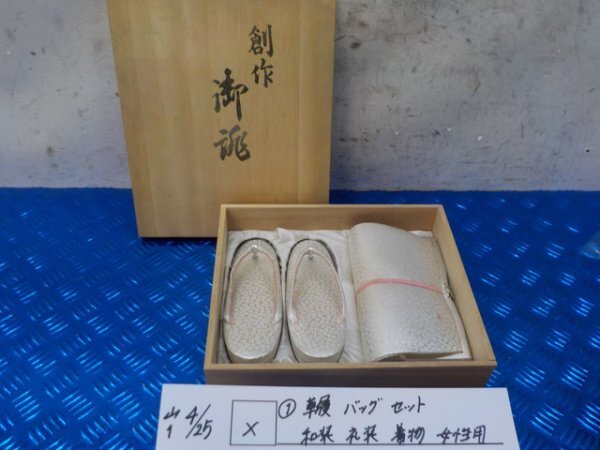 創作
御誂
山 4/25
1
X
① 草履 バッグ セット
和装 礼装 着物 女性用